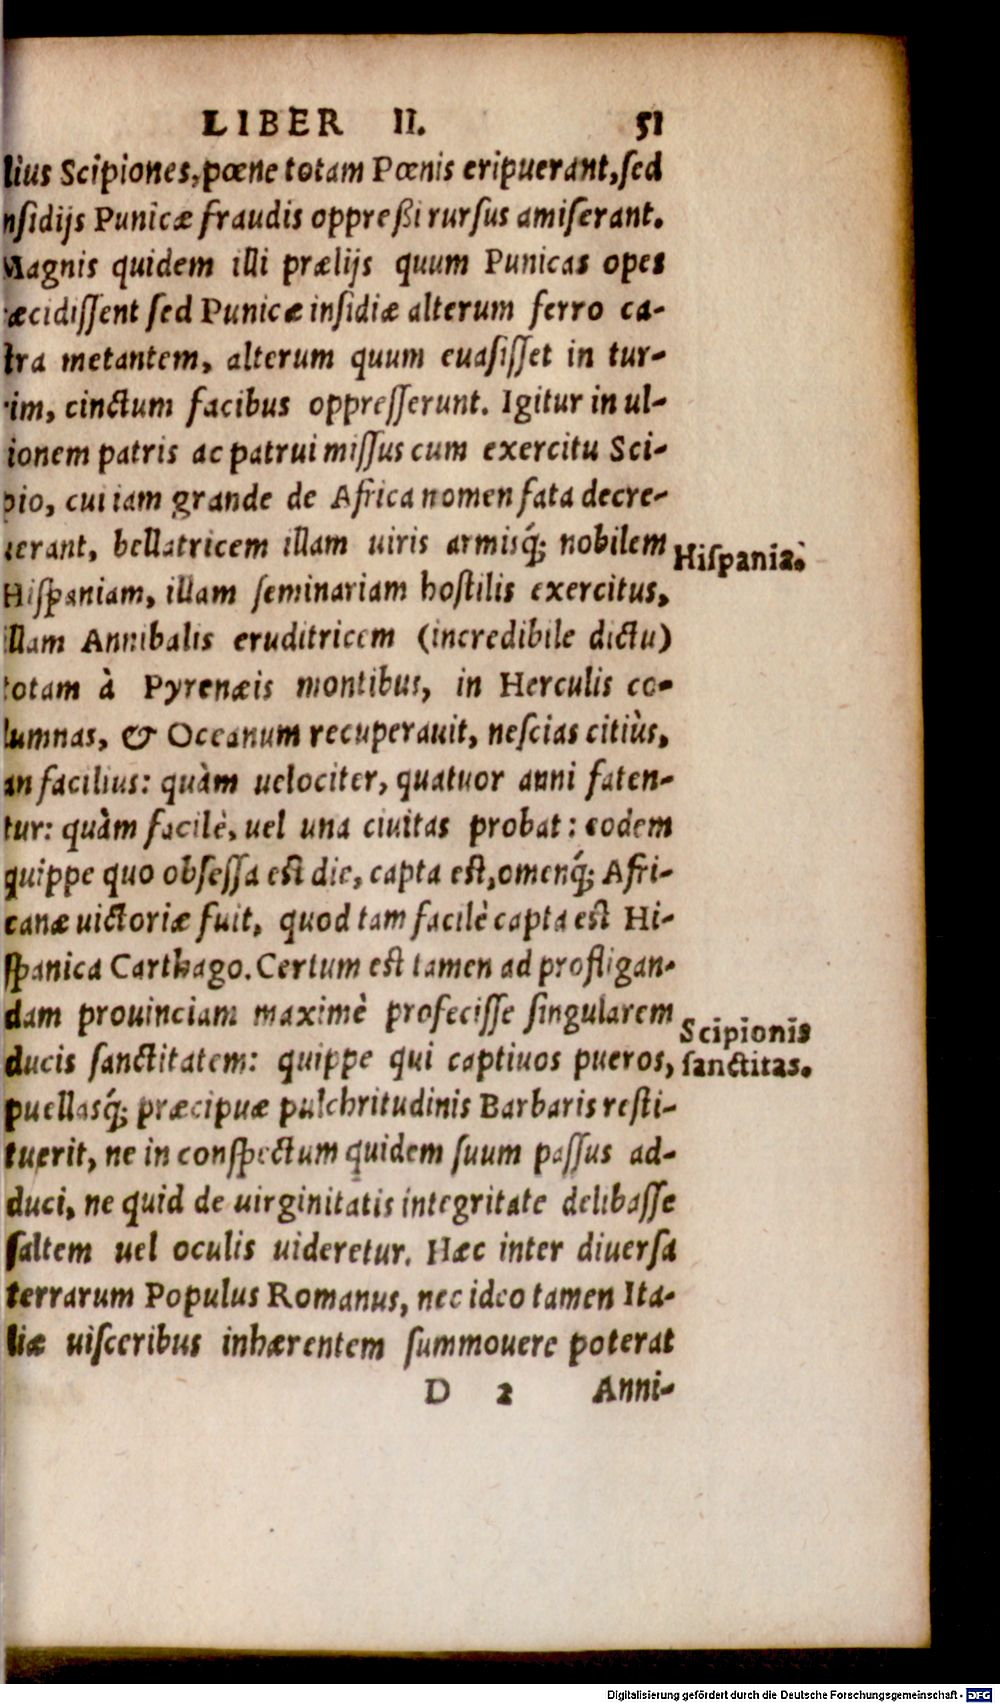 LIBER II. 51
lius Scipiones, pœne totam Pœnis eripuerant, sed
nsidijs Punicæ fraudis oppreßi rursus amiserant.
Magnis quidem illi prælijs quum Punicas opes
æcidissent sed Punicæ insidiæ alterum ferro ca-
tra metantem, alterum quum euasisset in tur-
rim, cinctum facibus oppresserunt. Igitur in ul-
ionem patris ac patrui missus cum exercitu Sci-
pio, cui iam grande de Africa nomen fata decre-
uerant, bellatricem illam uiris armisq́; nobilem
Hispania.
Hispaniam, illam seminariam hostilis exercitus,
illam Annibalis eruditricem (incredibile dictu)
totam à Pyrenæis montibus, in Herculis co-
lumnas, & Oceanum recuperauit, nescias citiùs,
an facilius: quàm uelociter, quatuor anni faten-
tur: quàm facilè, uel una ciuitas probat: eodem
quippe quo obsessa est die, capta est, omenq́; Afri-
canæ uictoriæ fuit, quod tam facilè capta est Hi-
spanica Carthago. Certum est tamen ad profligan-
dam prouinciam maximè profecisse singularem
Scipionis
ducis sanctitatem: quippe qui captiuos pueros,
sanctitas.
puellasq́; præcipuæ pulchritudinis Barbaris resti-
tuerit, ne in conspectum quidem suum passus ad-
duci, ne quid de uirginitatis integritate delibasse
saltem uel oculis uideretur. Hæc inter diuersa
terrarum Populus Romanus, nec ideo tamen Ita-
liæ uisceribus inhærentem summouere poterat
D 2 Anni-
Digitalisierung gefördert durch die Deutsche Forschungsgemeinschaft - DFG